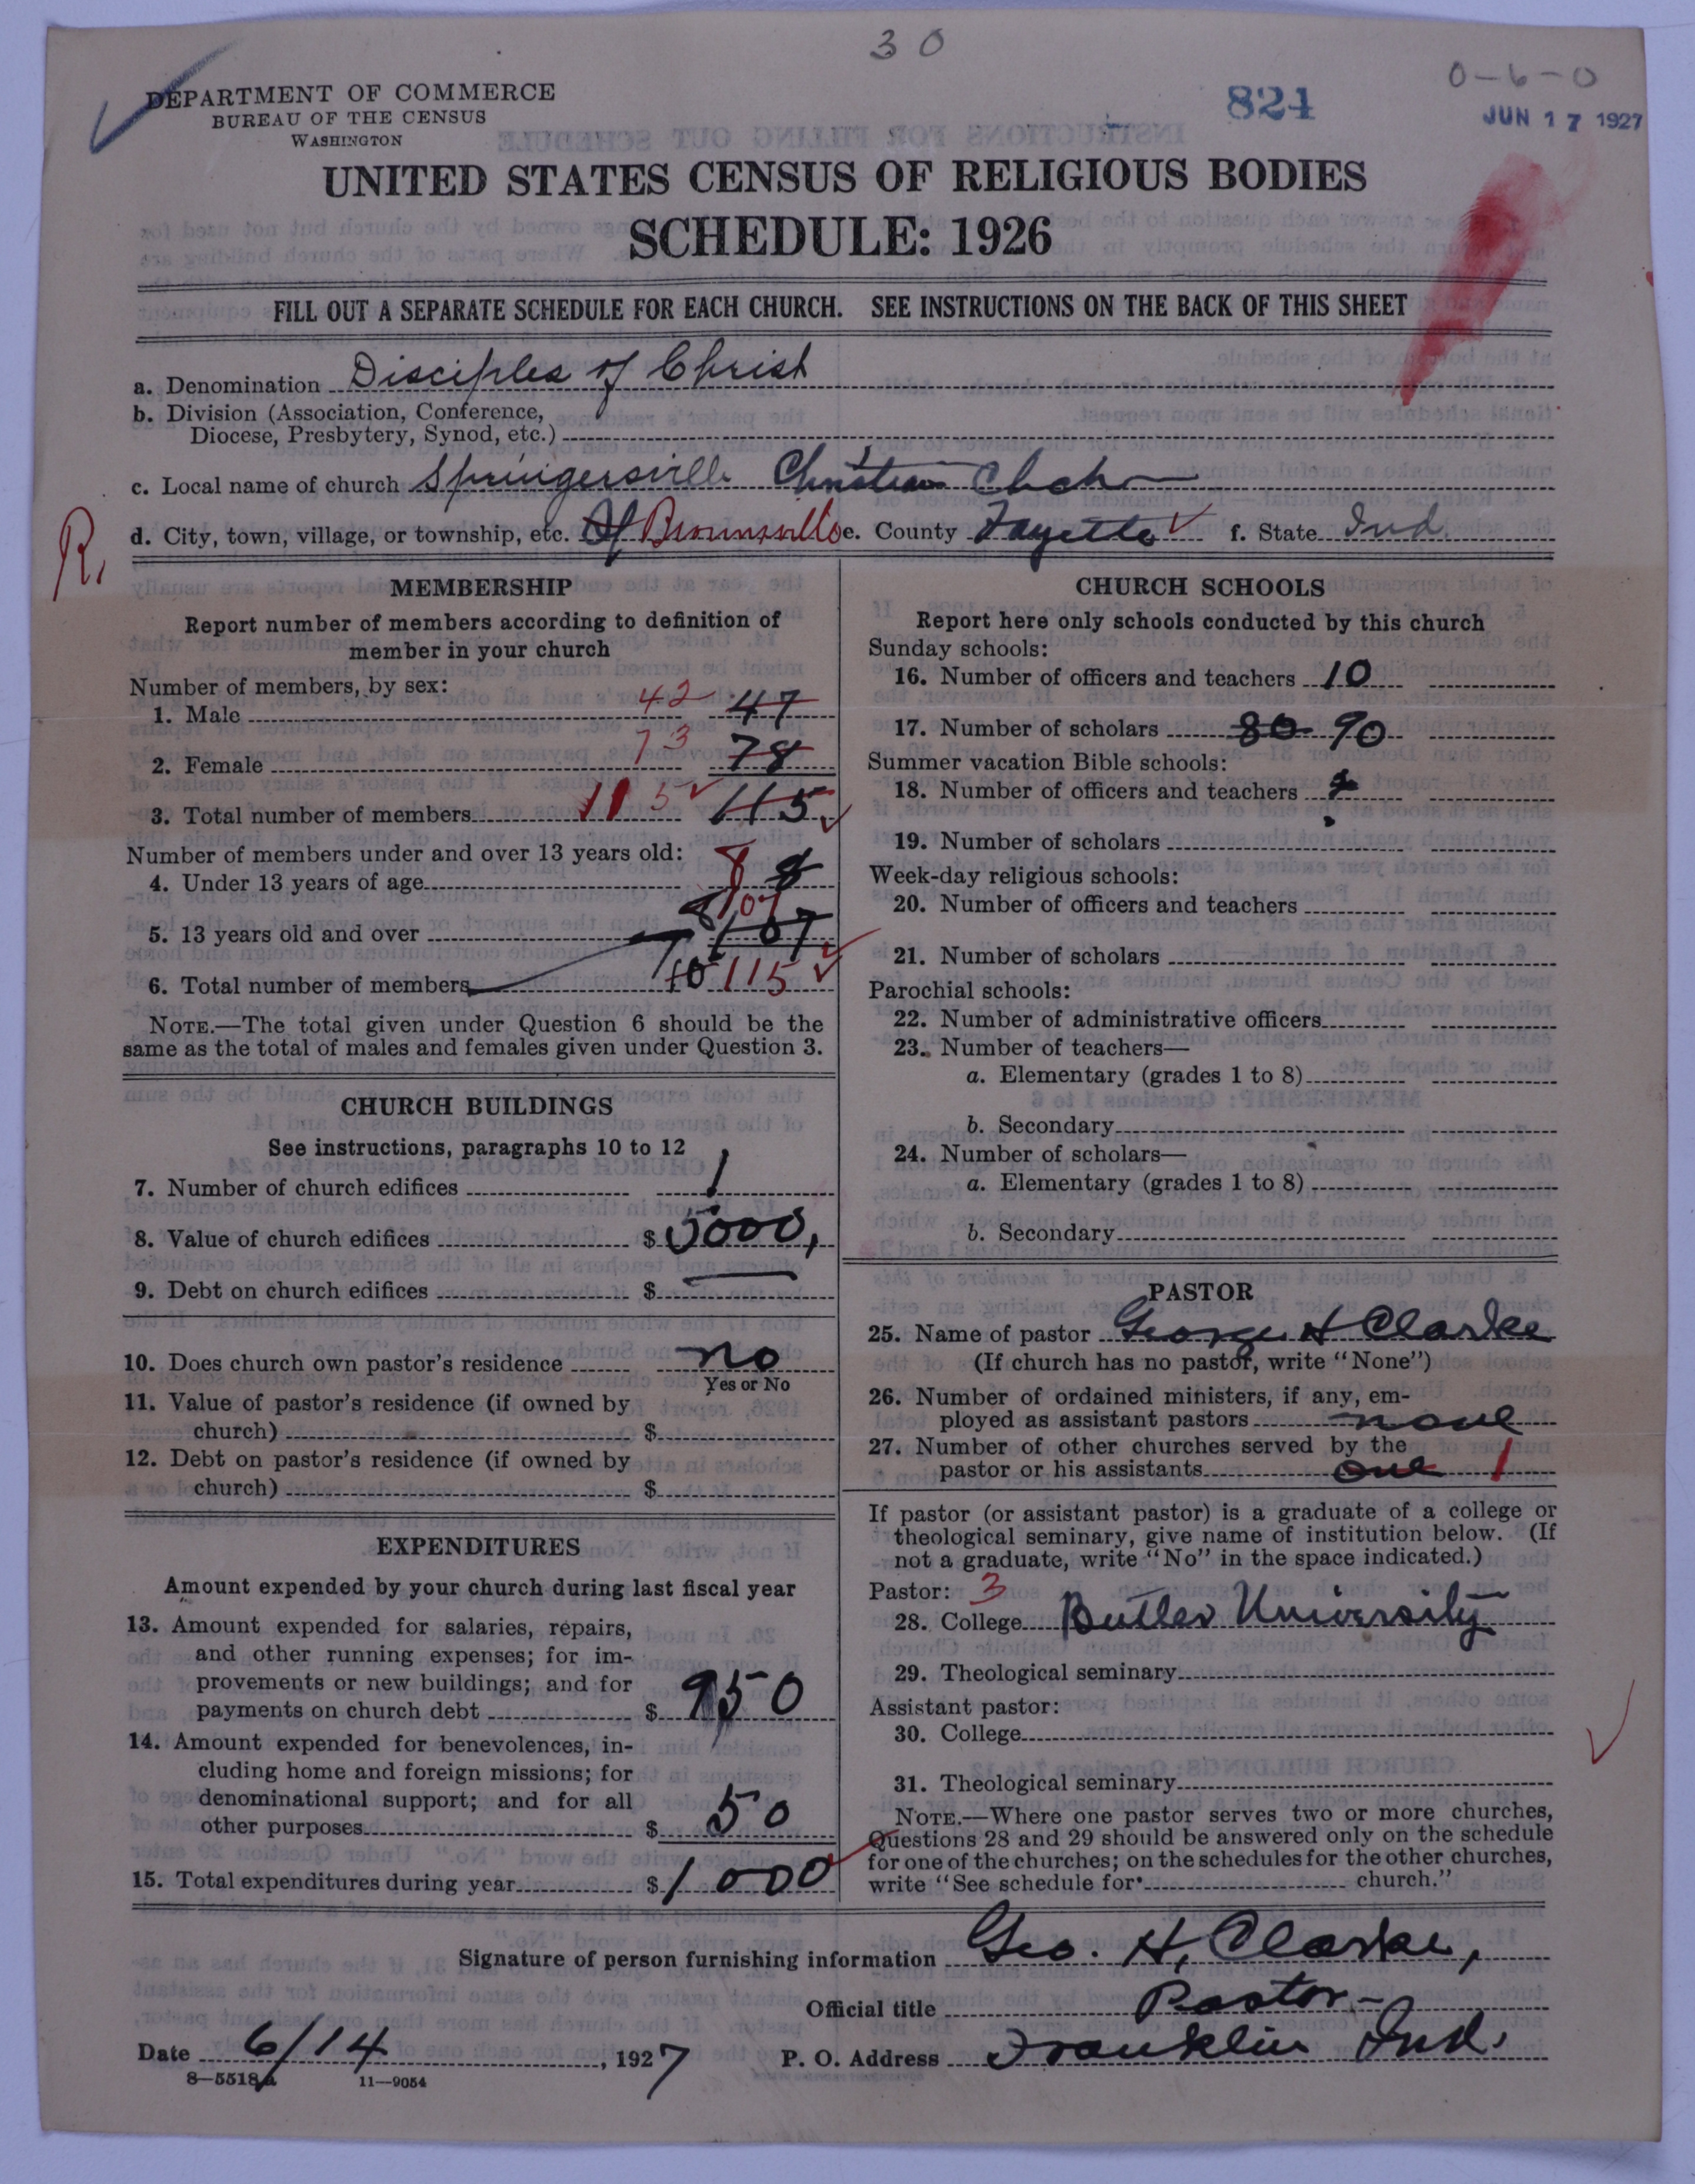 30
824
0-6-0
JUN 17 1927
DEPARTMENT OF COMMERCE
BUREAU OF THE CENSUS
WASHINGTON
UNITED STATES CENSUS OF RELIGIOUS BODIES
SCHEDULE: 1926
FILL OUT A SEPARATE SCHEDULE FOR EACH CHURCH. SEE INSTRUCTIONS ON THE BACK OF THIS SHEET
a. Denomination Disciples of Christ
b. Division (Association, Conference,
Diocese, Presbytery, Synod, etc.)
c. Local name of church Springersville Christian Chch
R. d. City, town, village, or township, etc. Of Brownsville e. County Fayette f. State Ind.
MEMBERSHIP
Report number of members according to definition of
member in your church
Number of members, by sex:
1. Male 42 47
2. Female 73 78
3. Total number of members 115 115
Number of members under and over 13 years old:
4. Under 13 years of age 8 8
5. 13 years old and over 107 107
6. Total number of members 115
NOTE.—The total given under Question 6 should be the
same as the total of males and females given under Question 3.
CHURCH BUILDINGS
See instructions, paragraphs 10 to 12
7. Number of church edifices 1
8. Value of church edifices $ 5000,
9. Debt on church edifices $ —
10. Does church own pastor's residence no
Yes or No
11. Value of pastor's residence (if owned by
church) $
12. Debt on pastor's residence (if owned by
church) $
EXPENDITURES
Amount expended by your church during last fiscal year
13. Amount expended for salaries, repairs,
and other running expenses; for im-
provements or new buildings; and for
payments on church debt $ 950
14. Amount expended for benevolences, in-
cluding home and foreign missions; for
denominational support; and for all
other purposes $ 50
15. Total expenditures during year $ 1000
CHURCH SCHOOLS
Report here only schools conducted by this church
Sunday schools:
16. Number of officers and teachers 10
17. Number of scholars 80 90
Summer vacation Bible schools:
18. Number of officers and teachers
19. Number of scholars
Week-day religious schools:
20. Number of officers and teachers
21. Number of scholars
Parochial schools:
22. Number of administrative officers
23. Number of teachers—
a. Elementary (grades 1 to 8)
b. Secondary
24. Number of scholars—
a. Elementary (grades 1 to 8)
b. Secondary
PASTOR
25. Name of pastor George H Clarke
(If church has no pastor, write "None")
26. Number of ordained ministers, if any, em-
ployed as assistant pastors none
27. Number of other churches served by the
pastor or his assistants one 1
If pastor (or assistant pastor) is a graduate of a college or
theological seminary, give name of institution below. (If
not a graduate, write "No" in the space indicated.)
Pastor: 3
28. College Butler University
29. Theological seminary
Assistant pastor:
30. College
31. Theological seminary
NOTE.—Where one pastor serves two or more churches,
Questions 28 and 29 should be answered only on the schedule
for one of the churches; on the schedules for the other churches,
write "See schedule for church."
Signature of person furnishing information Geo. H. Clarke,
Official title Pastor
Date 6/14, 1927 P. O. Address Franklin Ind.
8—5518a 11—9054